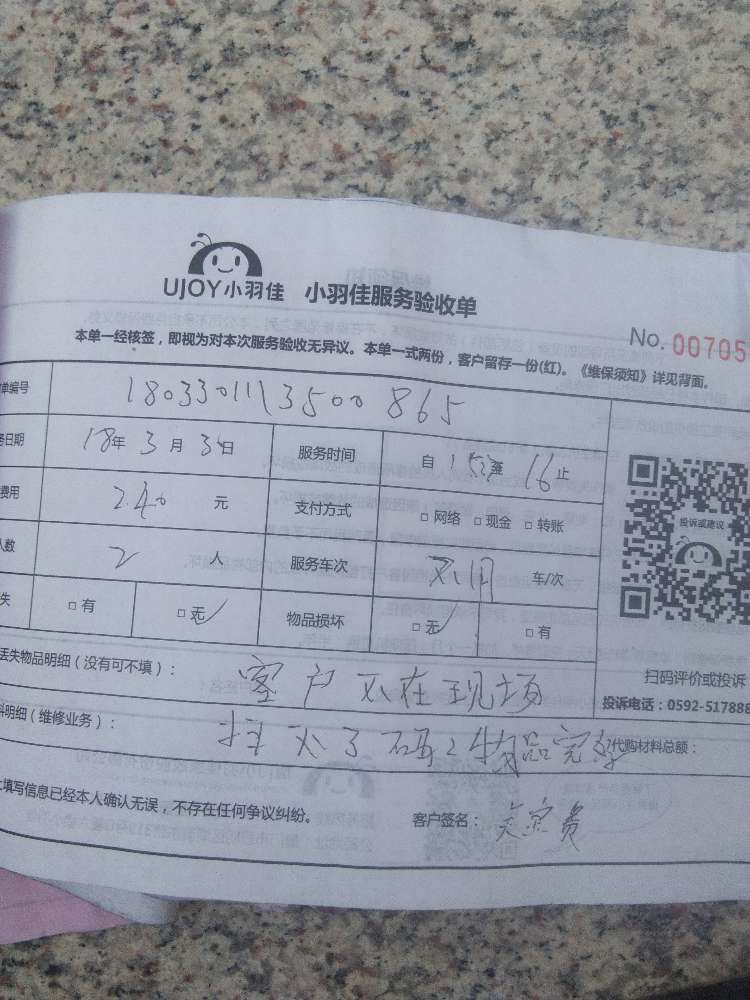 UJOY小羽佳 小羽佳服务验收单
No. 00705
本单一经核签，即视为对本次服务验收无异议。本单一式两份，客户留存一份(红)。《维保须知》详见背面。
单编号 1803301113500865
日期 18年3月3 日 服务时间 自 1 至16止
费用 240 元 支付方式 □网络 □现金 □转账
投诉或建议
人数 2 人 服务车次 不用 车/次
失 □有 □无 物品损坏 □无 □有
丢失物品明细（没有可不填）： 客户不在现场
扫码评价或投诉
投诉电话：0592-517888
料明细（维修业务）： 扫不了码 物品完好 代购材料总额：
填写信息已经本人确认无误，不存在任何争议纠纷。 客户签名：